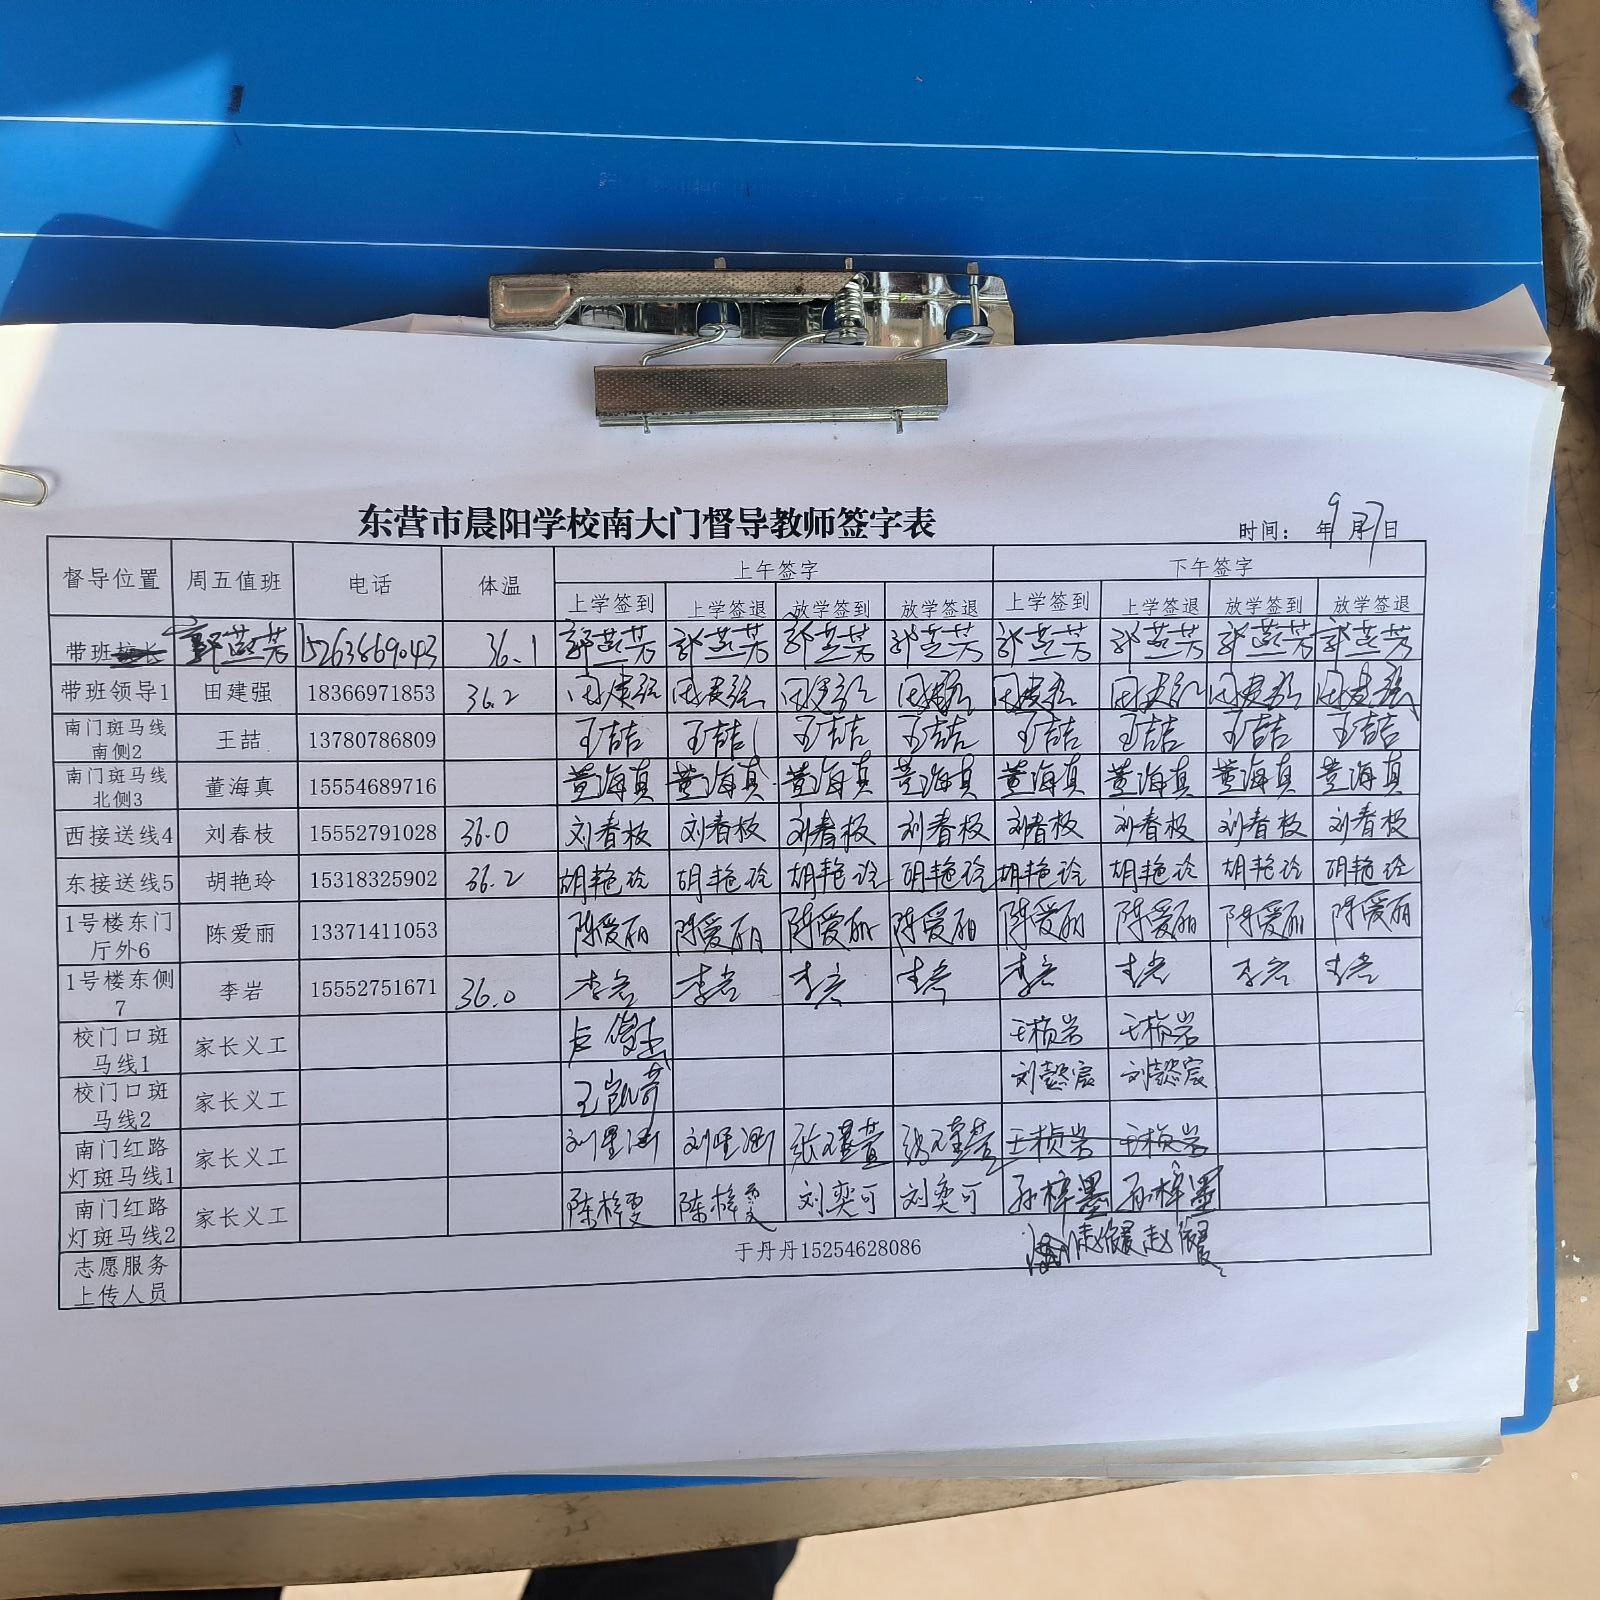 东营市晨阳学校南大门督导教师签字表
时间： 年9月27日
督导位置 周五值班 电话 体温 上午签字 下午签字
上学签到 上学签退 放学签到 放学签退 上学签到 上学签退 放学签到 放学签退
带班 郭燕芳 15263869043 36.1 郭燕芳 郭燕芳 郭燕芳 郭燕芳 郭燕芳 郭燕芳 郭燕芳 郭燕芳
带班领导1 田建强 18366971853 36.2 田建强 田建强 田建强 田建强 田建强 田建强 田建强 田建强
南门斑马线
南侧2 王喆 13780786809 王喆 王喆 王喆 王喆 王喆 王喆 王喆 王喆
南门斑马线
北侧3 董海真 15554689716 董海真 董海真 董海真 董海真 董海真 董海真 董海真 董海真
西接送线4 刘春枝 15552791028 36.0 刘春枝 刘春枝 刘春枝 刘春枝 刘春枝 刘春枝 刘春枝 刘春枝
东接送线5 胡艳玲 15318325902 36.2 胡艳玲 胡艳玲 胡艳玲 胡艳玲 胡艳玲 胡艳玲 胡艳玲 胡艳玲
1号楼东门
厅外6 陈爱丽 13371411053 陈爱丽 陈爱丽 陈爱丽 陈爱丽 陈爱丽 陈爱丽 陈爱丽 陈爱丽
1号楼东侧
7 李岩 15552751671 36.0 李岩 李岩 李岩 李岩 李岩 李岩 李岩 李岩
校门口斑
马线1 家长义工 王桢岩 王桢岩
校门口斑
马线2 家长义工 王凯芳 刘懿宸 刘懿宸
南门红路
灯斑马线1 家长义工 王桢岩 王桢岩
南门红路
灯斑马线2 家长义工 陈梓雯 陈梓雯 刘奕可 刘奕可 孙梓墨 孙梓墨
志愿服务
上传人员 于丹丹15254628086